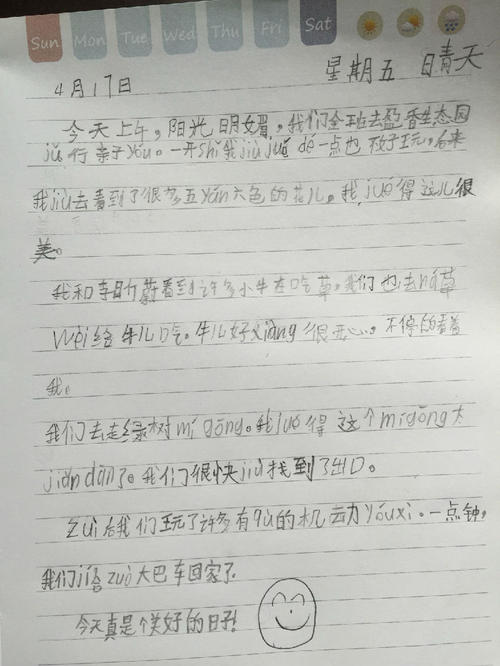 Sun Mon Tue Wed Thu Fri Sat
4月17日 星期五 晴天
今天上午,阳光明媚,我们全班去盈香生态园
jǔ行亲子yóu。一开shǐ我jiù jué de一点也不好玩,后来
我jiù去看到了很多五yán六色的花儿。我jué得这儿很
美。
我和李昕蔚看到许多小牛在吃草,我们也去ná草
wèi给牛儿吃。牛儿好xiàng很开心,不停的看着
我。
我们去走绿树mí gōng。我jué得这个mí gōng太
jiǎn dān了。我们很快jiù找到了出口。
zuì后我们玩了许多有qù的机动yóu xì。一点钟,
我们jiù zuò大巴车回家了
今天真是个美好的日子!